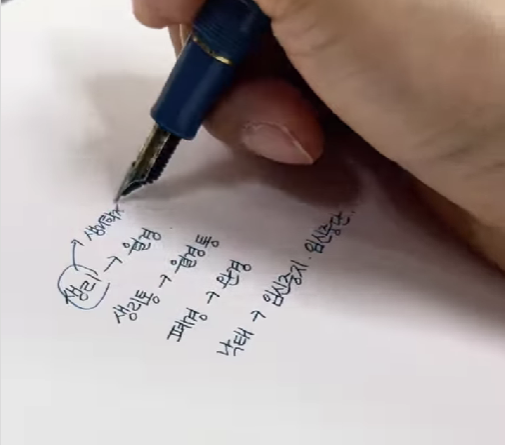 생리학
생리 → 월경
생리통 → 월경통
폐경 → 완경
낙태 → 임신중지. 임신중단.